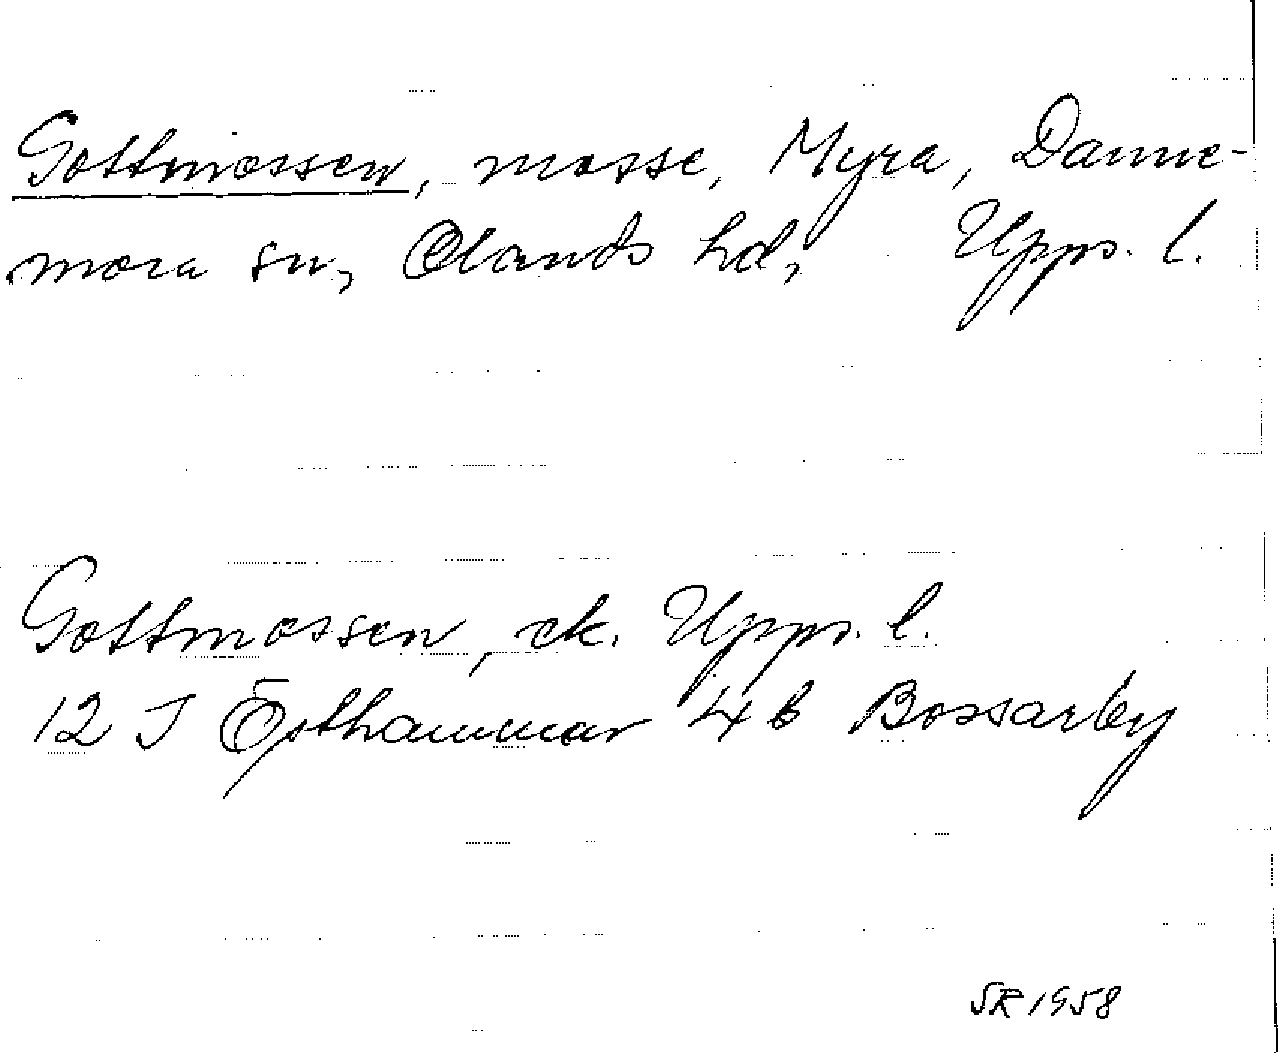 Gottmossen, mosse, Myra, Danne-
mora sn, Olands hd, Upps. l.
Gottmossen, ek. Upps. l.
12 I Östhammar 4b Bossarby
SR 1958